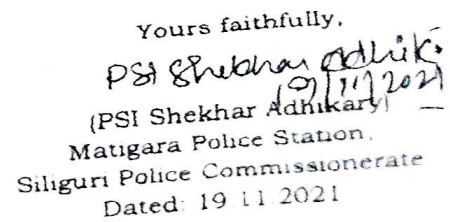 Yours faithfully,
PSI Shekhar Adhik.
19/11/2021
(PSI Shekhar Adhikary)
Matigara Police Station,
Siliguri Police Commissionerate
Dated: 19.11.2021